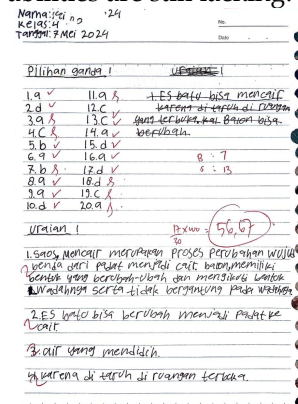 Nama:
'24
KElAS:4
Tanggal: 7 Mei 2024
No.
Date
Pilihan ganda !
1.a
2.d
3.a
4.c
5.b
6.a
7.b
8.a
9.a
10.d
11.a
12.c
13.c
14.a
15.d
16.a
17.d
18.d
19.c
20.a
1.ES batu bisa mencair
karena di taruh di ruangan
berubah.
B : 7
S : 13
Uraian !
17x100
30
56,67
1. mencair merupakan proses perubahan wujud
benda dari padat menjadi cair, memiliki
bentuk yang berubah-ubah dan mengikuti bentuk
wadahnya serta tidak bergantung pada wadahnya
2.ES batu bisa berubah menjadi padat ke
cair
3. air yang mendidih.
4. karena di taruh di ruangan terbuka.